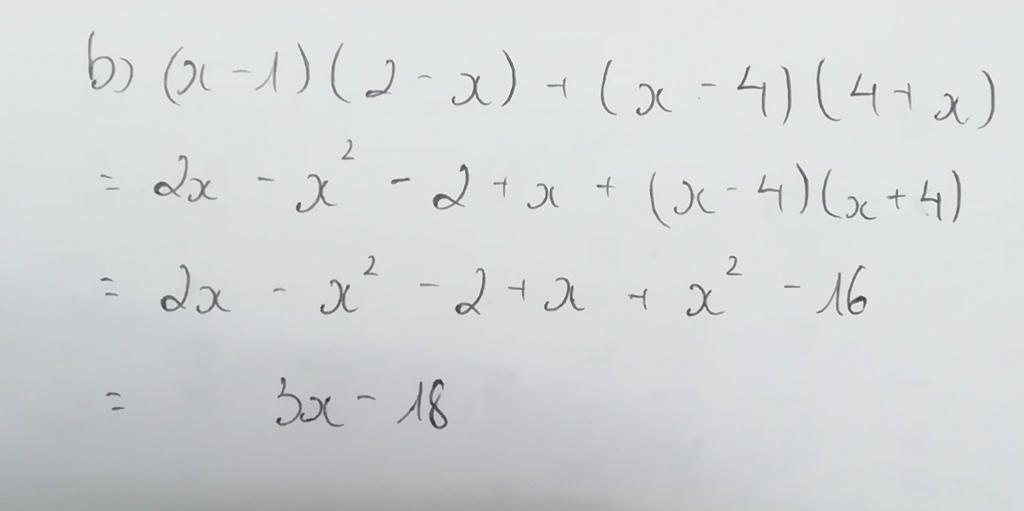 b) (x - 1)(2 - x) + (x - 4)(4 + x)
= 2x - x² - 2 + x + (x - 4)(x + 4)
= 2x - x² - 2 + x + x² - 16
= 3x - 18